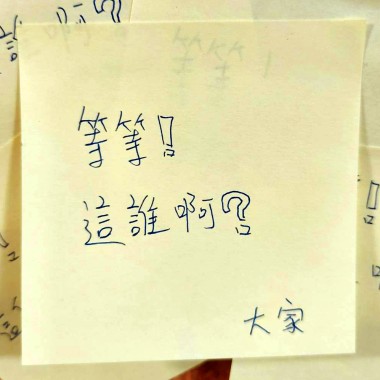 等等!
這誰啊?
大家